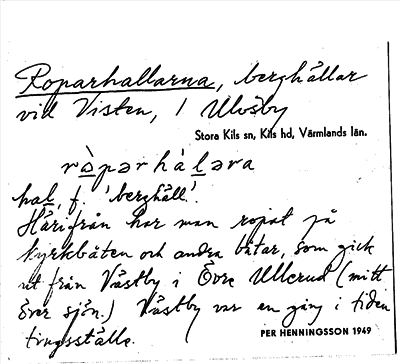 Roparhallarna, berghällar
vid Visten, / Ulvsby
Stora Kils sn, Kils hd, Värmlands län.
rò̱pərhàḻəra
haḻ, f. 'berghäll'.
Härifrån har man ropat på
kyrkbåten och andra båtar, som gick
ut från Västby i Övre Ullerud (mitt
över sjön.) Västby var en gång i tiden
tingsställe.
PER HENNINGSSON 1949